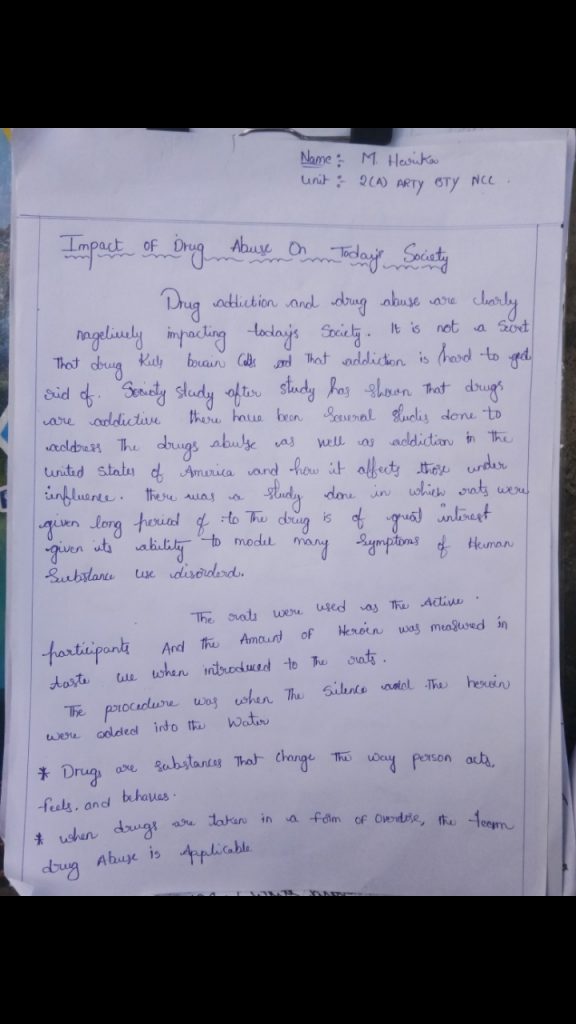 Name :- M. Harika
Unit :- 2(A) ARTY BTY NCC .
Impact of Drug Abuse On Today's Society
Drug addiction and drug abuse are clearly
nagelively impacting today's Society. It is not a Secret
That drug Kills brain Cells and That addiction is hard to get
rid of. Society study after study has shown That drugs
are addictive there have been Several studies done to
address The drugs abuse as well as addiction in the
united states of America and how it affects those under
influence. there was a study done in which rats were
given long period of to The drug is of great interest
given its ability to model many Symptoms of Human
Substance use disorderd.
The rats were used as The Active
participants And the Amount of Heroin was measured in
taste when introduced to The rats.
The procedure was when The Silence and The heroin
were added into the Water
* Drugs are substances That change The way person acts,
feels, and behaves.
* when drugs are taken in a form of overdose, the team
drug Abuse is Applicable